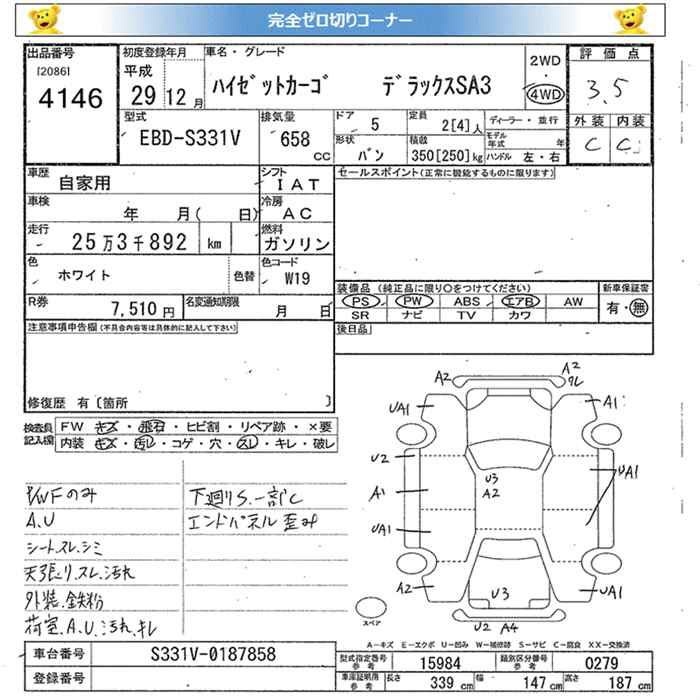 完全ゼロ切りコーナー
出品番号
[2086]
4146
初度登録年月
平成
29 12 月
車名・グレード
ハイゼットカーゴ デラックスSA3
2WD
・
4WD
評価点
3.5
外装 内装
C C
型式
EBD-S331V
排気量
658
CC
ドア 5
定員 2[4]人
ディーラー・並行
形状 バン
積載 350[250]kg
モデル年式 年
ハンドル 左・右
車歴
自家用
シフト
IAT
セールスポイント(正常に機能するものに限ります)
車検
年 月( 日)
冷房
AC
走行
25万3千892 km
燃料
ガソリン
色
ホワイト
色替
色コード
W19
装備品 (純正品に限り○をつけてください)
新車保証書
PS PW ABS エアB AW
有・無
SR ナビ TV カワ
R券
7,510円
名変通知期限
月 日
後日品
注意事項申告欄(不具合内容等は具体的に記入して下さい)
修復歴 有〔箇所 〕
検査員記入欄
FW キズ・飛石・ヒビ割・リペア跡・×要
内装 キズ・汚レ・コゲ・穴・スレ・キレ・破レ
P/WFのみ
A.U
シートスレ.シミ
天張り.スレ.汚れ
外装.鉄粉
荷室.A.U.汚れ.キレ
下廻りS.一部C
エンドパネル歪み
A2
A2
UA1
A1
U2
U3
A2
A1
UA1
UA1
A2
U3
UA1
U2 A4
スペア
A-キズ E-エクボ U-凹み W-補修跡 S-サビ C-腐食 XX-交換済
車台番号
S331V-0187858
登録番号
型式指定番号 参考
15984
類別区分番号 参考
0279
車庫証明用 参考
長さ 339 cm
幅 147 cm
高さ 187 cm